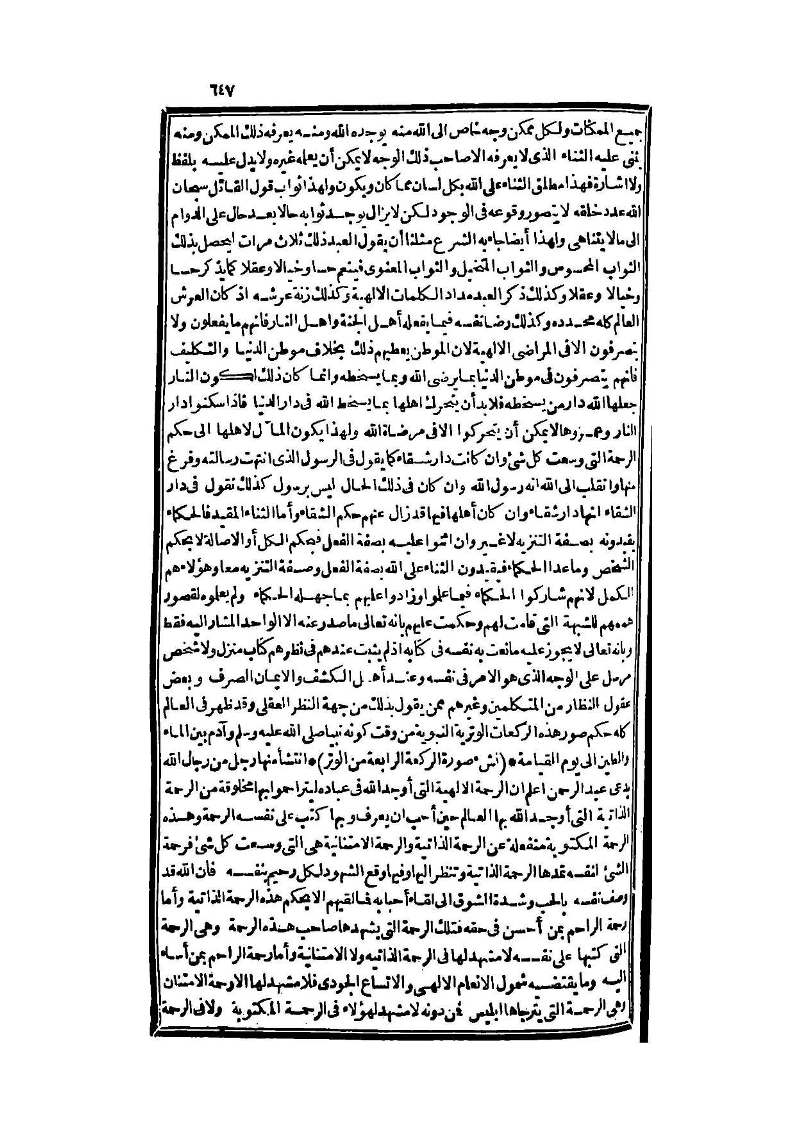 ٦٤٧
جميع الممكنات ولكل ممكن وجه خاص الى الله منه يوجده الله ومنه يعرفه ذلك الممكن ومنه
يثنى عليه الثناء الذى لا يعرفه الا صاحب ذلك الوجه لا يمكن أن يعلمه غيره ولا يدل عليه بلفظ
ولا اشارة فهذا مطلق الثناء على الله بكل لسان مما كان ويكون ولهذا ثواب قول القائل سبحان
الله عدد خلقه لا يتصور وقوعه فى الوجود لكن لا يزال يوجد ثوابه حالا بعد حال على الدوام
الى ما لا يتناهى ولهذا أيضا جاء به الشرع مثلثا أن يقول العبد ذلك ثلاث مرات ليحصل بذلك
الثواب المحسوس والثواب المتخيل والثواب المعنوى فينعم حسا وخيالا وعقلا كما يذكر حسا
وخيالا وعقلا وكذلك ذكر العبد مداد الكلمات الالهية وكذلك زنة عرشه اذ كان العرش
العالم كله محدده وكذلك رضا نفسه فيما يفعله أهل الجنة واهل النار فانهم ما يفعلون ولا
يتصرفون الا فى المراضى الالهية لان الموطن يعطيهم ذلك بخلاف موطن الدنيا والتكليف
فانهم يتصرفون فى موطن الدنيا بما يرضى الله وبما يسخطه وانما كان ذلك لكون النار
جعلها الله دار من يسخطه فلا بد أن يتحرك اهلها بما يسخط الله فى دار الدنيا فاذا سكنوا دار
النار وعمروها لا يمكن أن يتحركوا الا فى مرضاة الله ولهذا يكون المآل لاهلها الى حكم
الرحمة التى وسعت كل شئ وان كانت دار شقاء كما يقول فى الرسول الذى انتهت رسالته وفرغ
منها وانقلب الى الله انه رسول الله وان كان فى ذلك الحال ليس برسول كذلك نقول فى دار
الشقاء انها دار شقاء وان كان أهلها فيها قد زال عنهم حكم الشقاء وأما الثناء المقيد فالحكماء
يقيدونه بصفة التنزيه لا غير وان اثنوا عليه بصفة الفعل فبحكم الكل أو الاصالة لا بحكم
الشخص وما عدا الحكماء فيقيدون الثناء على الله بصفة الفعل وصفة التنزيه معا وهؤلاء هم
الكمل لانهم شاركوا الحكماء فيما علموا وزادوا عليهم بما جهله الحكماء ولم يعلموه لقصور
هممهم للشبهة التى قامت لهم وحكمت عليهم بانه تعالى ما صدر عنه الا الواحد المشار اليه فقط
وبانه تعالى لا يجوز عليه ما نعت به نفسه فى كتابه اذ لم يثبت عندهم فى نظرهم كتاب منزل ولا شخص
مرسل على الوجه الذى هو الامر فى نفسه وعند أهل الكشف والايمان الصرف وبعض
عقول النظار من المتكلمين وغيرهم ممن يقول بذلك من جهة النظر العقلى وقد ظهر فى العالم
كله حكم صور هذه الركعات الوترية النبوية من وقت كونه نبيا صلى الله عليه وسلم وآدم بين الماء
والطين الى يوم القيامة * (نش ء صورة الركعة الرابعة من الوتر) * انتشأ منها رجل من رجال الله
يدعى عبد الرحمن اعلم ان الرحمة الالهية التى أوجد الله فى عباده ليتراحموا بها مخلوقة من الرحمة
الذاتية التى أوجد الله بها العالم حين أحب ان يعرف وبها كتب على نفسه الرحمة وهذه
الرحمة المكتوبة منفعلة عن الرحمة الذاتية والرحمة الامتنانية هى التى وسعت كل شئ فرحمة
الشئ لنفسه تمدها الرحمة الذاتية وتنظر اليها وفيها وقع الشهود لكل رحيم بنفسه فان الله قد
وصف نفسه بالحب وشدة الشوق الى لقاء أحبابه فما لقيهم الا بحكم هذه الرحمة الذاتية وأما
رحمة الراحم بمن أحسن فى حقه فتلك الرحمة التى يشهدها صاحب هذه الرحمة وهى الرحمة
التى كتبها على نفسه لا مشهد لها فى الرحمة الذاتيه ولا الامتنانية وأما رحمة الراحم بمن أساء
اليه وما يقتضيه شمول الانعام الالهى والاتساع الجودى فلا مشهد لها الا رحمة الامتنان
وهى الرحمة التى يترجاها ابليس فمن دونه لا مشهد لهؤلاء فى الرحمة المكتوبة ولا فى الرحمة